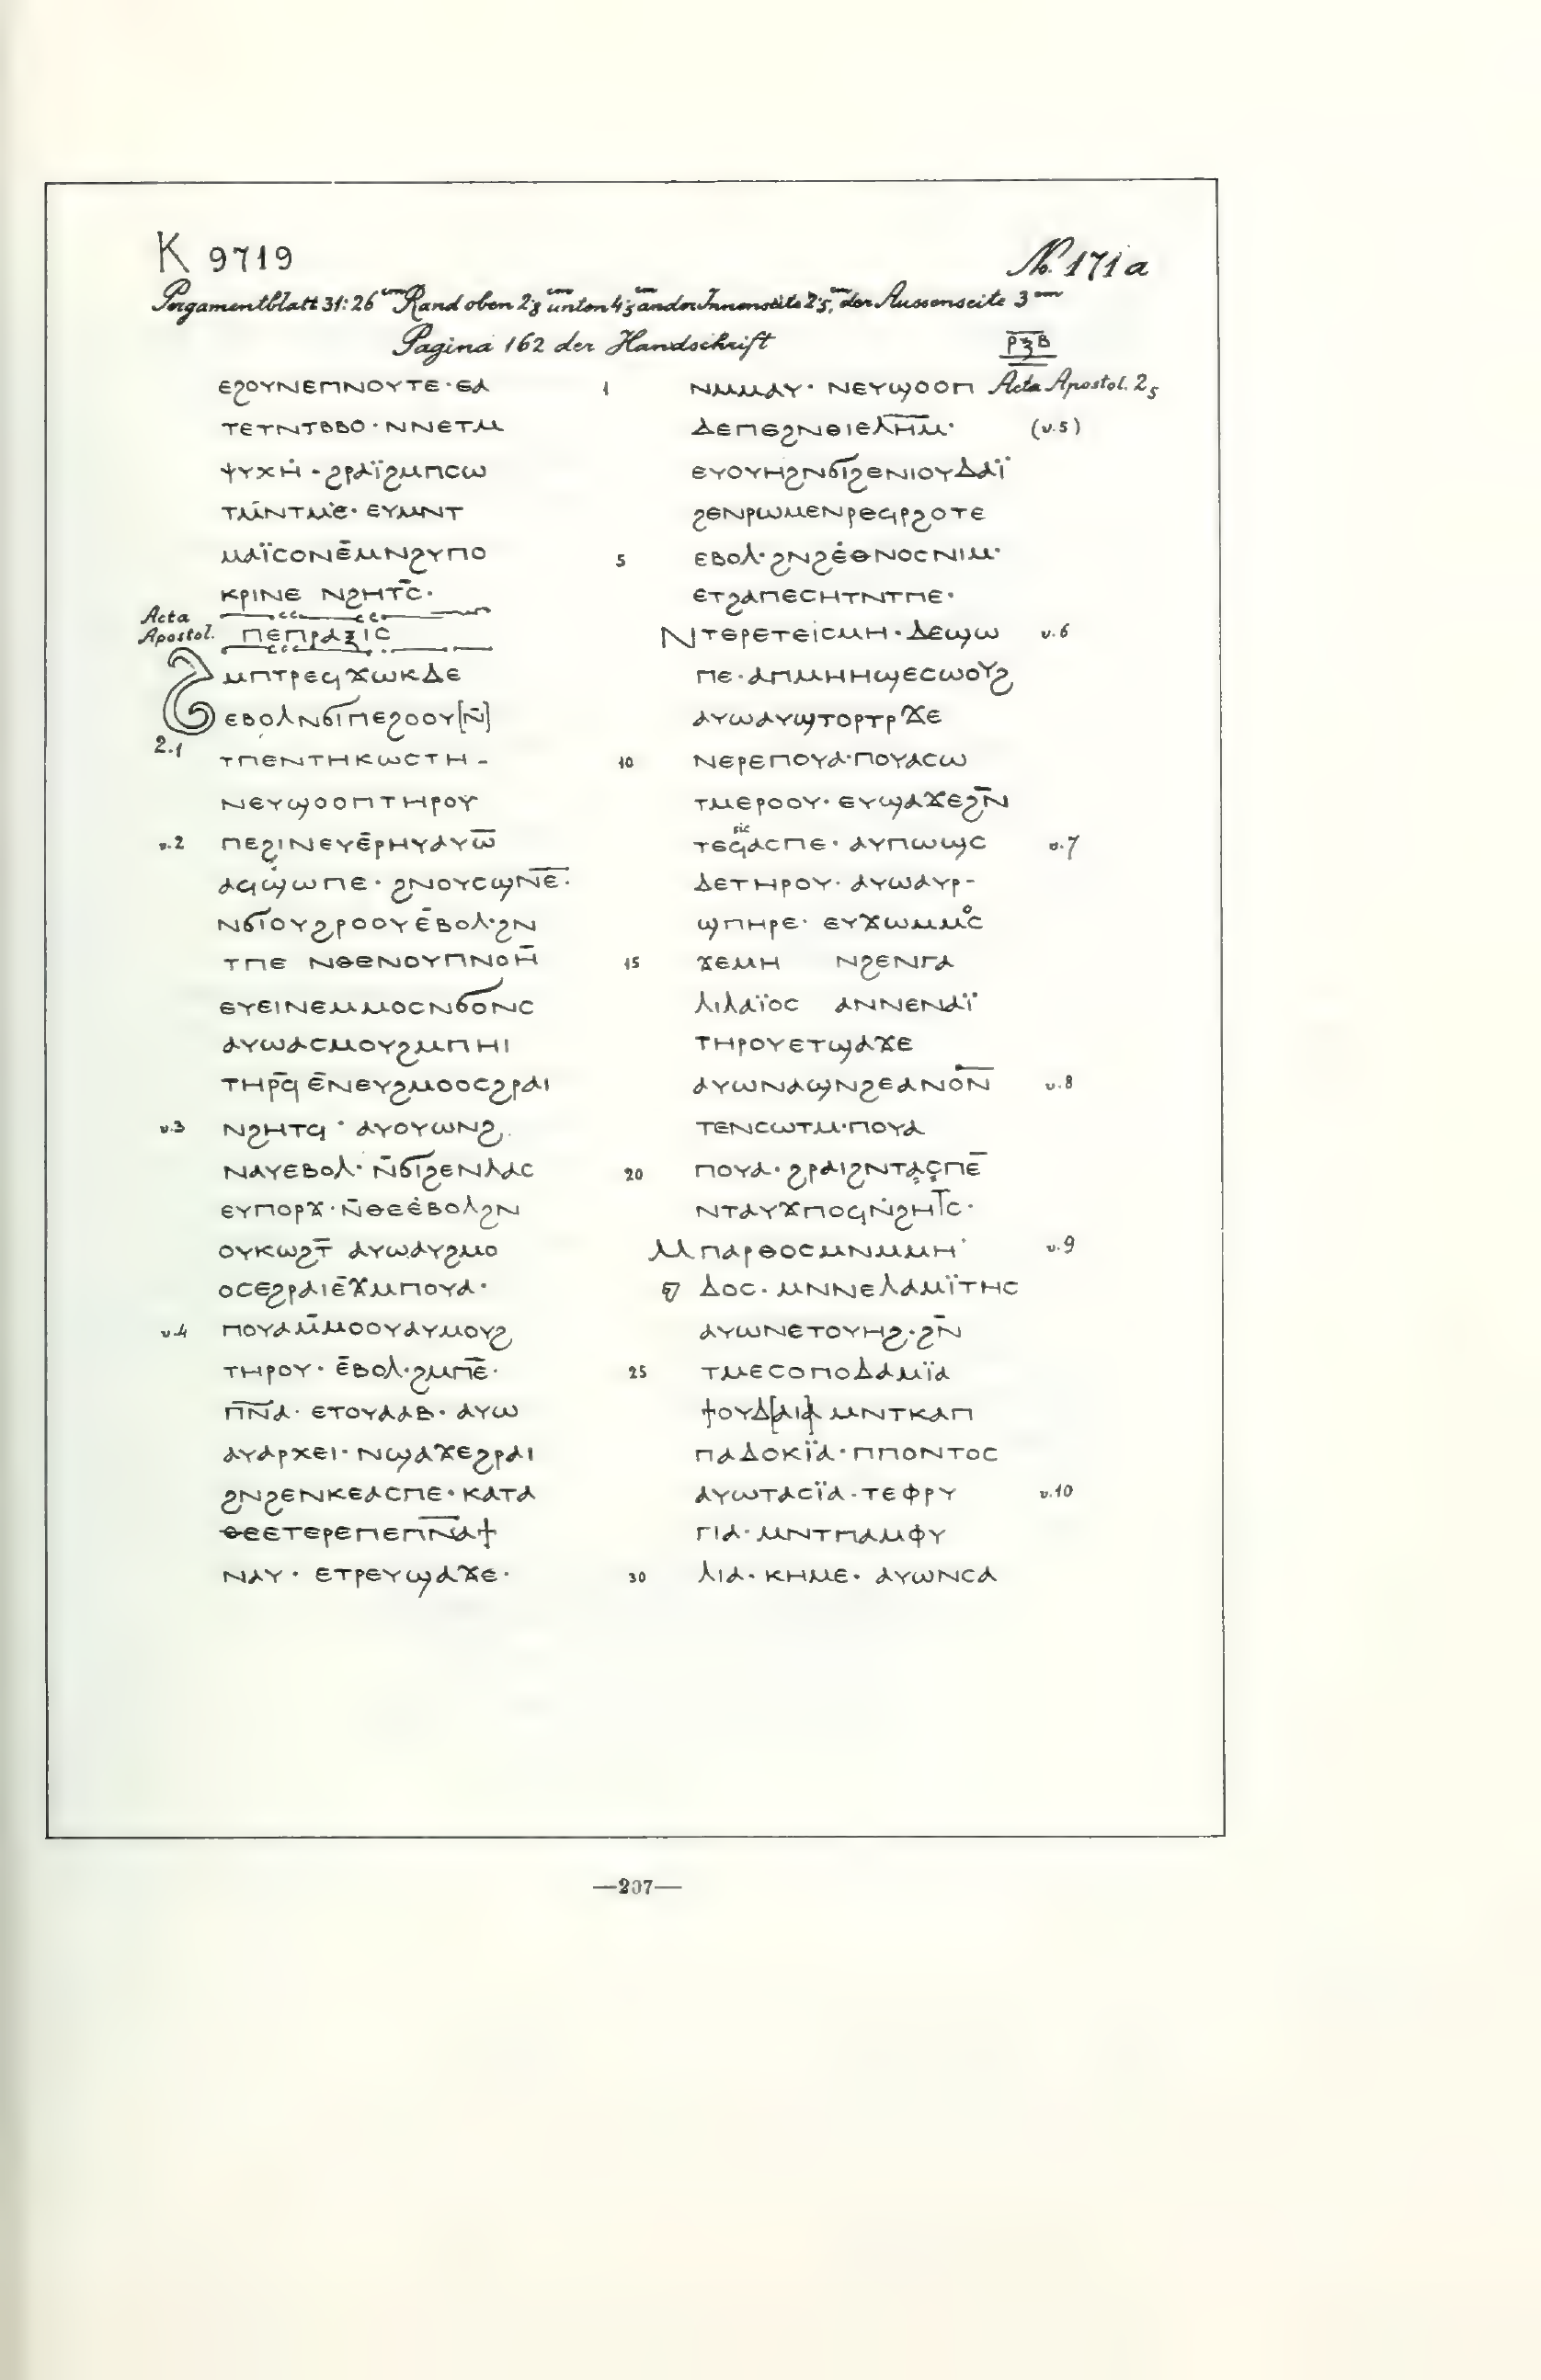 K 9719
No. 171a
Pergamentblatt 31:26 cm Rand oben 2·8 cm unten 4·5 cm an der Innenseite 2·5 cm, der Aussenseite 3 cm
Pagina 162 der Handschrift
ⲣⲝⲃ
ⲉϩⲟⲩⲛⲉⲡⲛⲟⲩⲧⲉ·ⲉⲁ
ⲧⲉⲧⲛⲧⲃⲃⲟ·ⲛⲛⲉⲧⲙ
ⲯⲩⲭⲏ̇·ϩⲣⲁⲓ̈ϩⲙⲡⲥⲱ
ⲧⲙ̄ⲛⲧⲙⲉ̇·ⲉⲩⲙⲛⲧ
ⲙⲁⲓ̈ⲥⲟⲛⲉ̄ⲙⲛϩⲩⲡⲟ
ⲕⲣⲓⲛⲉ ⲛϩⲏⲧⲥ̄·
Acta
Apostol. ⲡⲉⲡⲣⲁⲝⲓⲥ
Ϩⲙⲡⲧⲣⲉϥϫⲱⲕⲇⲉ
ⲉⲃⲟⲗⲛϭⲓⲡⲉϩⲟⲟⲩ[ⲛ̄]
2.1
ⲧⲡⲉⲛⲧⲏⲕⲱⲥⲧⲏ-
ⲛⲉⲩϣⲟⲟⲡⲧⲏⲣⲟⲩ
v.2 ⲡⲉϩⲓⲛⲉⲩⲉ̄ⲣⲏⲩⲁⲩⲱ̄
ⲁϥϣ̇ⲱⲡⲉ·ϩⲛⲟⲩⲥϣⲛ̄ⲉ̄·
ⲛϭⲓⲟⲩϩⲣⲟⲟⲩⲉ̄ⲃⲟⲗ·ϩⲛ
ⲧⲡⲉ ⲛⲑⲉⲛⲟⲩⲡⲛⲟⲏ̄
ⲉⲩⲉⲓⲛⲉⲙⲙⲟⲥⲛϭⲟⲛⲥ
ⲁⲩⲱⲁⲥⲙⲟⲩϩⲙⲡⲏⲓ
ⲧⲏⲣ̄ϥ ⲉ̄ⲛⲉⲩϩⲙⲟⲟⲥϩⲣⲁⲓ
v.3 ⲛϩⲏⲧϥ·ⲁⲩⲟⲩⲱⲛϩ
ⲛⲁⲩⲉⲃⲟⲗ·ⲛ̄ϭⲓϩⲉⲛⲗⲁⲥ
ⲉⲩⲡⲟⲣϫ·ⲛ̄ⲑⲉⲉ̇ⲃⲟⲗϩⲛ
ⲟⲩⲕⲱϩⲧ̄ ⲁⲩⲱⲁⲩϩⲙⲟ
ⲟⲥⲉϩⲣⲁⲓⲉ̄ϫⲙⲡⲟⲩⲁ·
v.4 ⲡⲟⲩⲁⲙ̄ⲙⲟⲟⲩⲁⲩⲙⲟⲩϩ
ⲧⲏⲣⲟⲩ·ⲉ̄ⲃⲟⲗ·ϩⲙⲡ̄ⲉ̄·
ⲡ̄ⲛ̄ⲁ·ⲉⲧⲟⲩⲁⲁⲃ·ⲁⲩⲱ
ⲁⲩⲁⲣⲭⲉⲓ·ⲛϣⲁϫⲉϩⲣⲁⲓ
ϩⲛϩⲉⲛⲕⲉⲁⲥⲡⲉ·ⲕⲁⲧⲁ
ⲑⲉⲉⲧⲉⲣⲉⲡⲉⲡ̄ⲛ̄ⲁϯ
ⲛⲁⲩ·ⲉⲧⲣⲉⲩϣⲁϫⲉ·
1 ⲛⲙⲙⲁⲩ·ⲛⲉⲩϣⲟⲟⲡ Acta Apostol. 2,5
ⲇⲉⲡⲉϩⲛⲑⲓⲉⲗ̄ⲏ̄ⲙ̄· (v.5)
ⲉⲩⲟⲩⲏϩⲛϭⲓϩⲉⲛⲓⲟⲩⲇⲁⲓ̈
ϩⲉⲛⲣⲱⲙⲉⲛⲣⲉϥⲣϩⲟⲧⲉ
5 ⲉⲃⲟⲗ·ϩⲛϩⲉ̇ⲑⲛⲟⲥⲛⲓⲙ·
ⲉⲧϩⲁⲡⲉⲥⲏⲧⲛⲧⲡⲉ·
ⲛⲧⲉⲣⲉⲧⲉⲓⲥⲙⲏ·ⲇⲉϣⲱ v.6
ⲡⲉ·ⲁⲡⲙⲏⲏϣⲉⲥⲱⲟⲩϩ
ⲁⲩⲱⲁⲩϣⲧⲟⲣⲧⲣϫⲉ
10 ⲛⲉⲣⲉⲡⲟⲩⲁ·ⲡⲟⲩⲁⲥⲱ
ⲧⲙⲉⲣⲟⲟⲩ·ⲉⲩϣⲁϫⲉϩⲛ̄
sic
ⲧⲉϥⲁⲥⲡⲉ·ⲁⲩⲡⲱϣⲥ v.7
ⲇⲉⲧⲏⲣⲟⲩ·ⲁⲩⲱⲁⲩⲣ-
ϣⲡⲏⲣⲉ·ⲉⲩϫⲱⲙⲙⲟⲥ
15 ϫⲉⲙⲏ ⲛϩⲉⲛⲅⲁ
ⲗⲓⲗⲁⲓ̈ⲟⲥ ⲁⲛⲛⲉⲛⲁⲓ̈
ⲧⲏⲣⲟⲩⲉⲧϣⲁϫⲉ
ⲁⲩⲱⲛⲁϣⲛϩⲉⲁⲛⲟ̄ⲛ̄ v.8
ⲧⲉⲛⲥⲱⲧⲙ·ⲡⲟⲩⲁ
20 ⲡⲟⲩⲁ·ϩⲣⲁⲓϩⲛⲧⲁⲥⲡⲉ̄
ⲛⲧⲁⲩϫⲡⲟϥⲛ̇ϩⲏⲧ̄ⲥ·
ⲙⲡⲁⲣⲑⲟⲥⲙⲛⲙⲙⲏ· v.9
ⲇⲟⲥ·ⲙⲛⲛⲉⲗⲁⲙⲓ̈ⲧⲏⲥ
ⲁⲩⲱⲛⲉⲧⲟⲩⲏϩ·ϩⲛ̄
25 ⲧⲙⲉⲥⲟⲡⲟⲇⲁⲙⲓ̈ⲁ
ϯⲟⲩⲇ[ⲁⲓⲁ] ⲙⲛⲧⲕⲁⲡ
ⲡⲁⲇⲟⲕⲓ̈ⲁ·ⲡⲡⲟⲛⲧⲟⲥ
ⲁⲩⲱⲧⲁⲥⲓ̈ⲁ·ⲧⲉⲫⲣⲩ v.10
ⲅⲓⲁ·ⲙⲛⲧⲡⲁⲙⲫⲩ
30 ⲗⲓⲁ·ⲕⲏⲙⲉ·ⲁⲩⲱⲛⲥⲁ
—207—